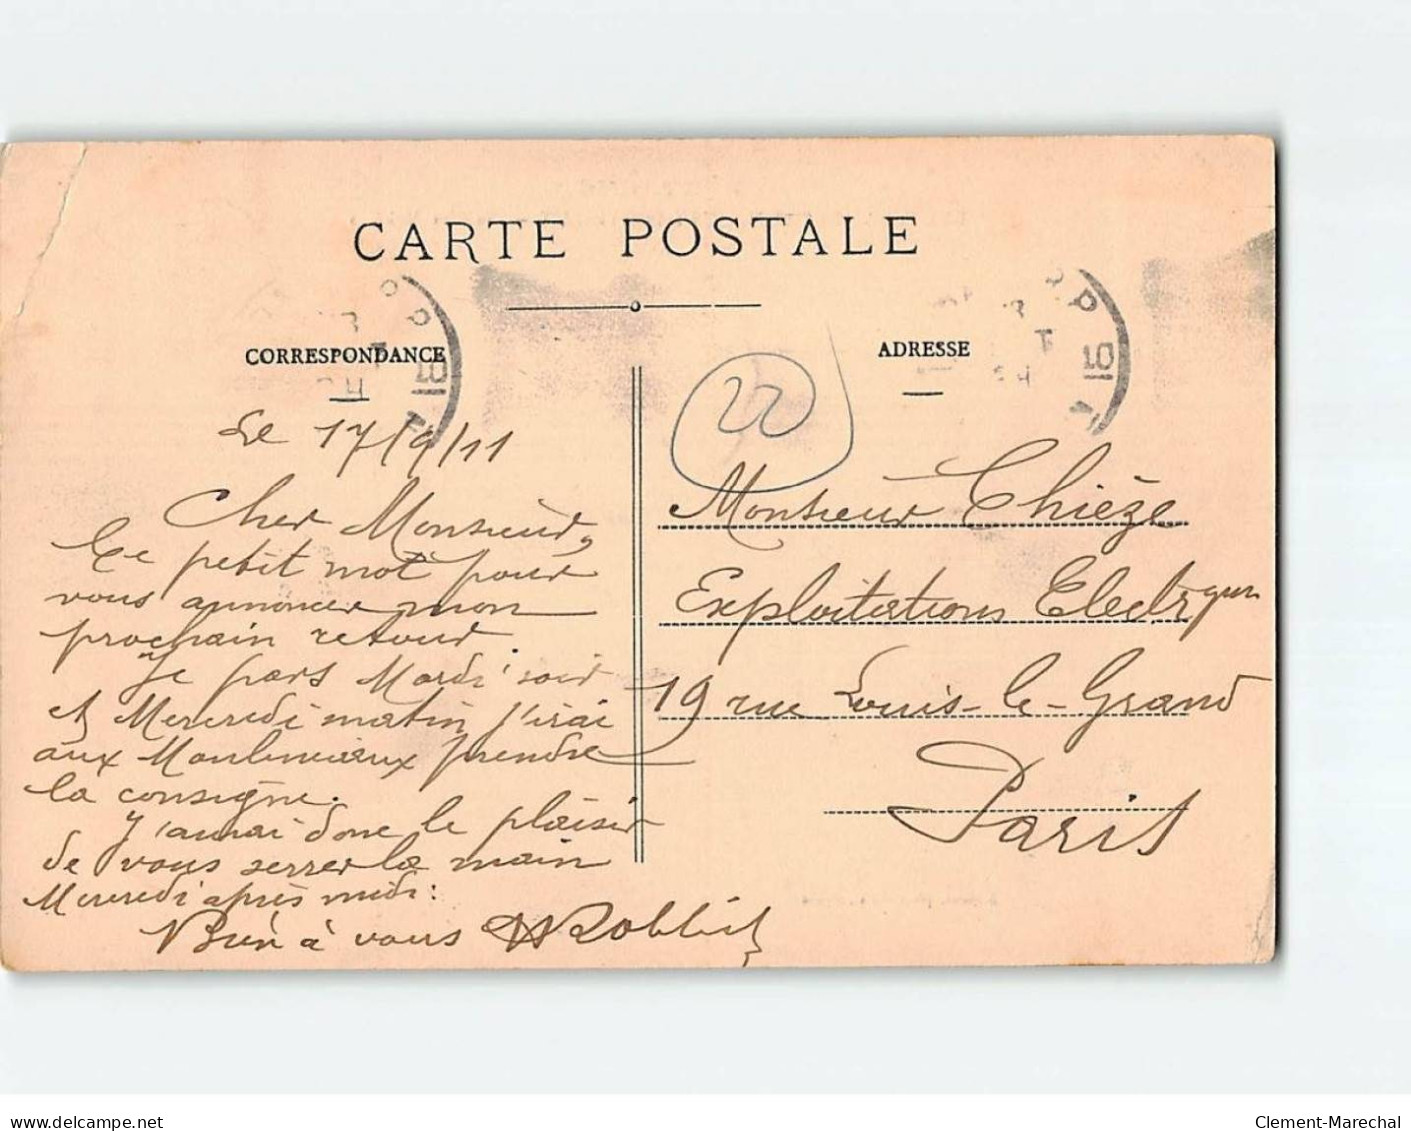 CARTE POSTALE
CORRESPONDANCE
Le 17/9/11
Cher Monsieur,
Ce petit mot pour
vous annoncer mon
prochain retour.
Je pars Mardi soir
et Mercredi matin j'irai
aux Moulineaux prendre
la consigne.
J'aurai donc le plaisir
de vous serrer la main
Mercredi après midi.
Bien à vous
ADRESSE
22
Monsieur Thièze
Exploitations Electriques
19 rue Louis-le-Grand
Paris
delcampe.net
Clement-Marechal